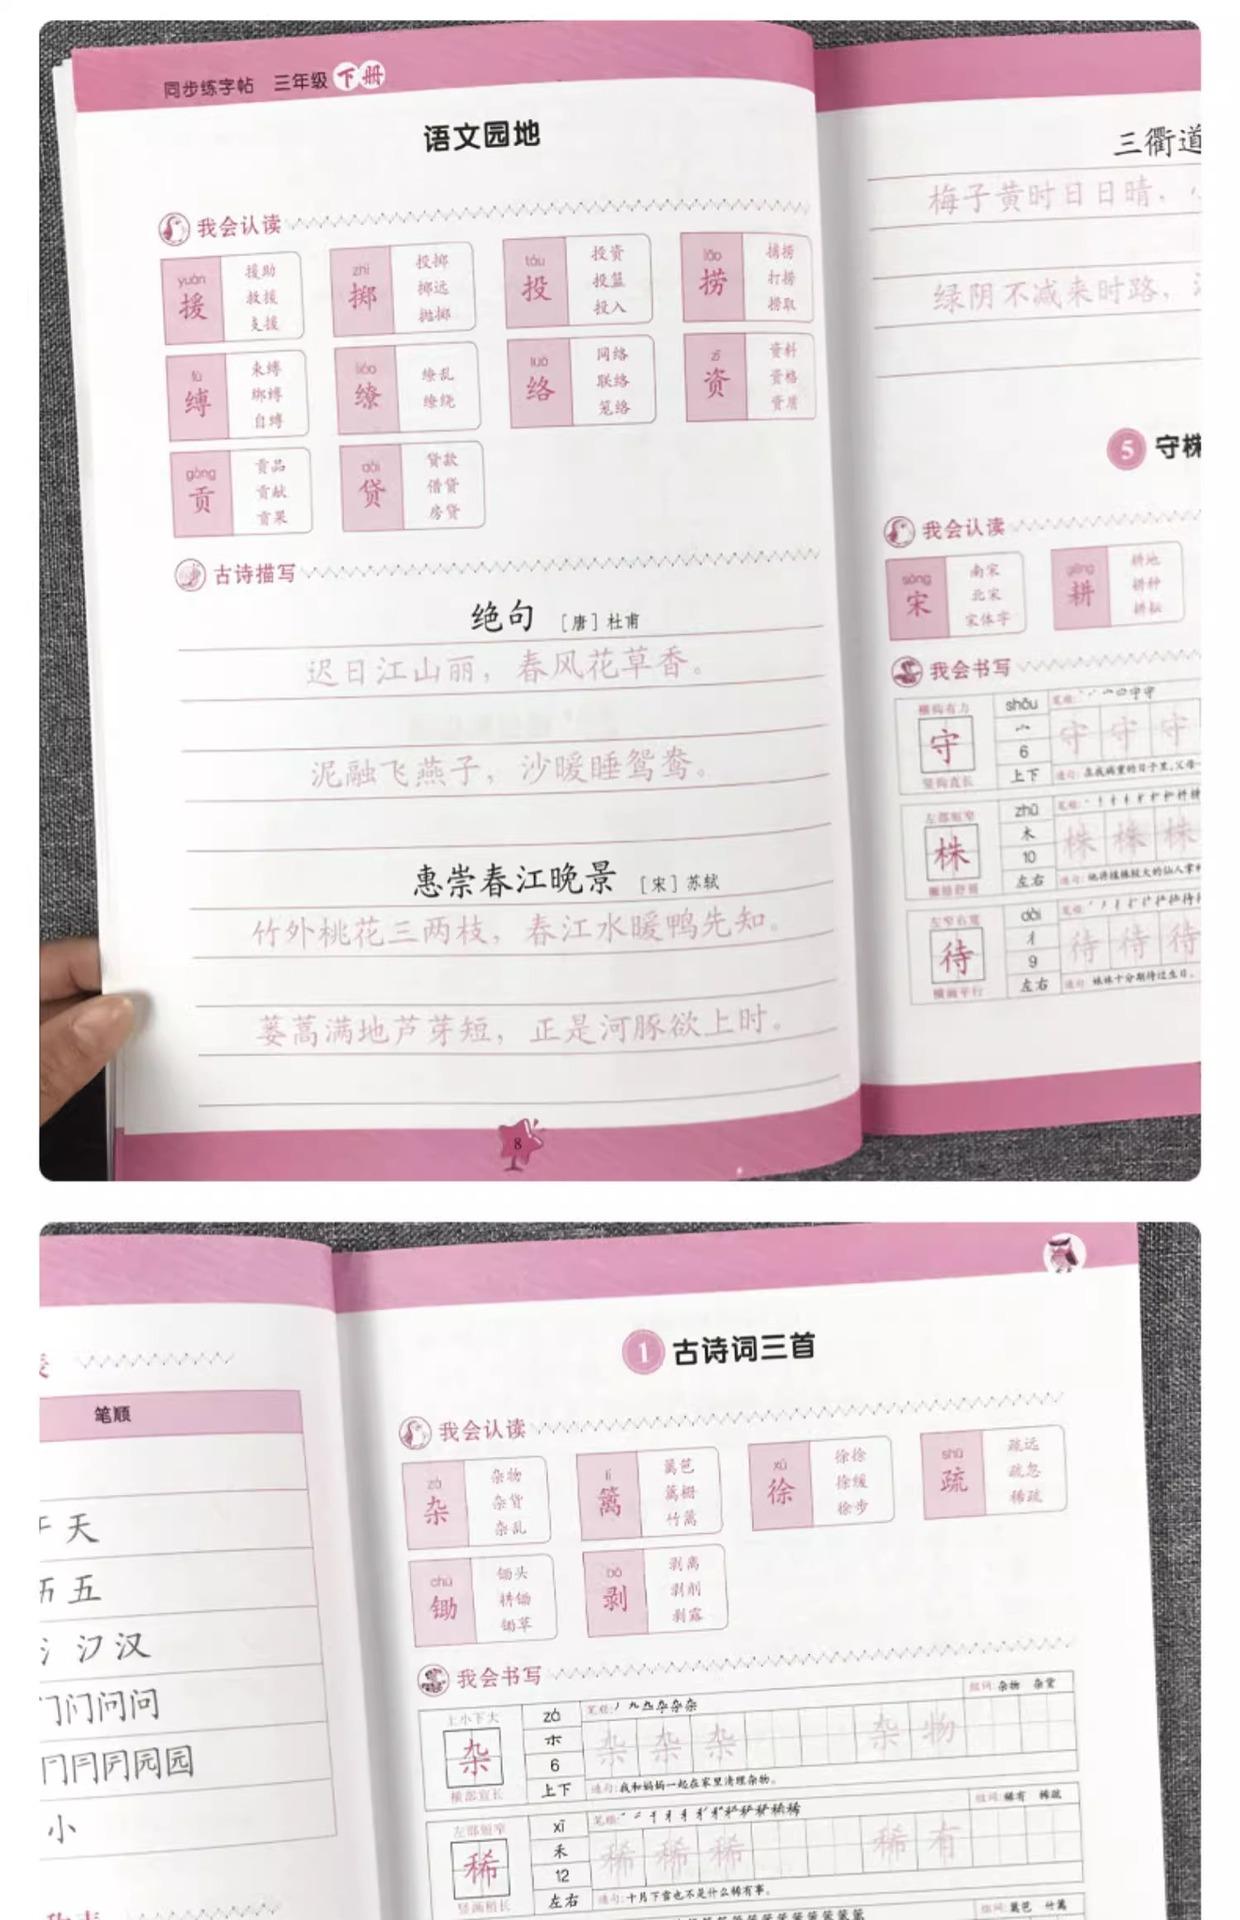 同步练字帖 三年级 下册
语文园地
我会认读
yuán 援 援助 救援 支援
zhì 掷 投掷 掷远 抛掷
tóu 投 投资 投篮 投入
lāo 捞 捕捞 打捞 捞取
fù 缚 束缚 绑缚 自缚
liáo 缭 缭乱 缭绕
luò 络 网络 联络 笼络
zī 资 资料 资格 资质
gòng 贡 贡品 贡献 贡果
dài 贷 贷款 借贷 房贷
古诗描写
绝句 [唐]杜甫
迟日江山丽，春风花草香。
泥融飞燕子，沙暖睡鸳鸯。
惠崇春江晚景 [宋]苏轼
竹外桃花三两枝，春江水暖鸭先知。
蒌蒿满地芦芽短，正是河豚欲上时。
8
三衢道
梅子黄时日日晴，
绿阴不减来时路，
5 守株
我会认读
sòng 宋 南宋 北宋 宋体字
gēng 耕 耕地 耕种 耕耘
我会书写
横钩有力 守 竖钩直长
shǒu 宀 6 上下
笔顺:
守 守 守
造句: 在我病重的日子里，父母一
左部短窄 株 撇捺舒展
zhū 木 10 左右
笔顺:
株 株 株
左窄右宽 待 横画平行
dài 彳 9 左右
笔顺:
待 待 待
造句: 妹妹十分期待过生日。
笔顺
天
五
汉
问问
园园
小
1 古诗词三首
我会认读
zá 杂 杂物 杂货 杂乱
lí 篱 篱笆 篱栅 竹篱
xú 徐 徐徐 徐缓 徐步
shū 疏 疏远 疏忽 稀疏
chú 锄 锄头 耕锄 锄草
bō 剥 剥离 剥削 剥露
我会书写
上小下大 杂 横部宜长
zá 木 6 上下
笔顺:
组词: 杂物 杂堂
杂 杂 杂 杂 物
造句: 我和妈妈一起在家里清理杂物。
左部短窄 稀 竖画稍长
xī 禾 12 左右
笔顺:
组词: 稀有 稀疏
稀 稀 稀 稀 有
造句: 十月下雪也不是什么稀有事。
组词: 篱笆 竹篱